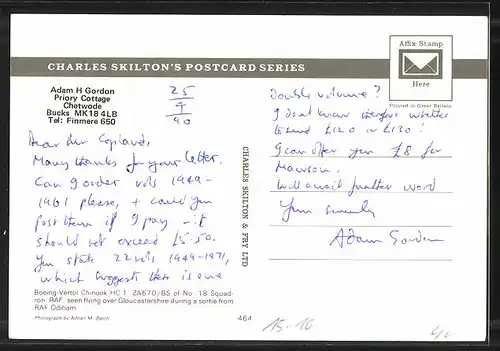 CHARLES SKILTON'S POSTCARD SERIES
Affix Stamp
Here
Printed in Great Britain
Adam H Gordon
Priory Cottage
Chetwode
Bucks MK18 4LB
Tel: Finmere 650
25
4
90
Dear Mr Copland,
Many thanks for your letter.
Can I order vols 1949-
1961 please, + could you
post them if I pay - it
should not exceed £5.50.
You state 22 vols 1949-1971,
which suggests there is one
CHARLES SKILTON & FRY LTD
Double volume?
I don't know therefore whether
to send £120 or £130!
I can offer you £8 for
Mawson.
Will await further word
Yours sincerely
Adam Gordon
Boeing-Vertol Chinook HC I. ZA670/BS of No. 18 Squad-
ron, RAF, seen flying over Gloucestershire during a sortie from
RAF Odiham
Photograph by Adrian M. Balch
464
15-16